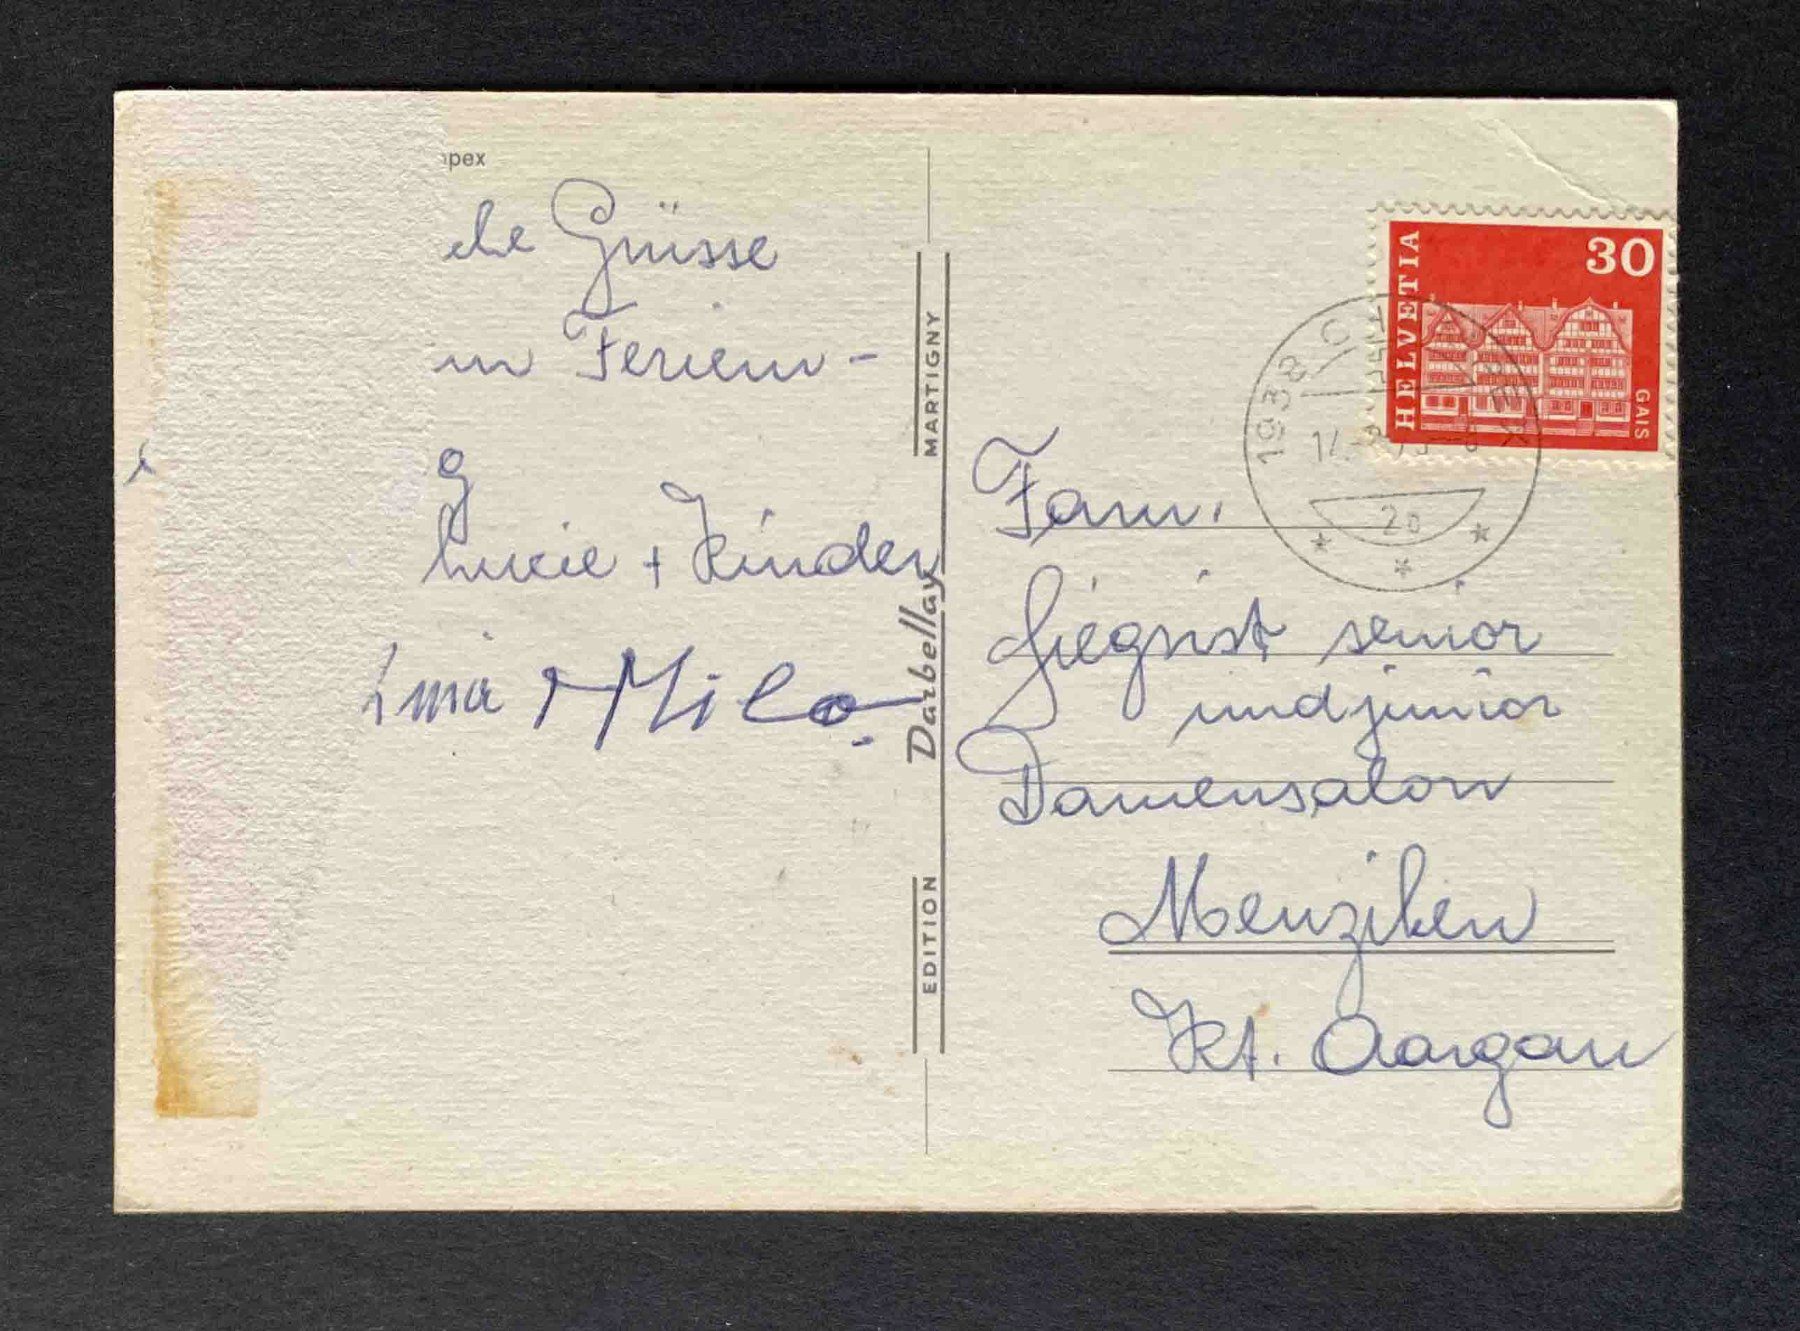 pex
Grüsse
Ferien -
g
Lucie + Kinder
+ Milo
EDITION Darbellay MARTIGNY
HELVETIA
30
GAIS
1938 CHAMPEX
2a
Fam.
Siegrist senior
und junior
Damensalon
Menziken
Kt. Aargau